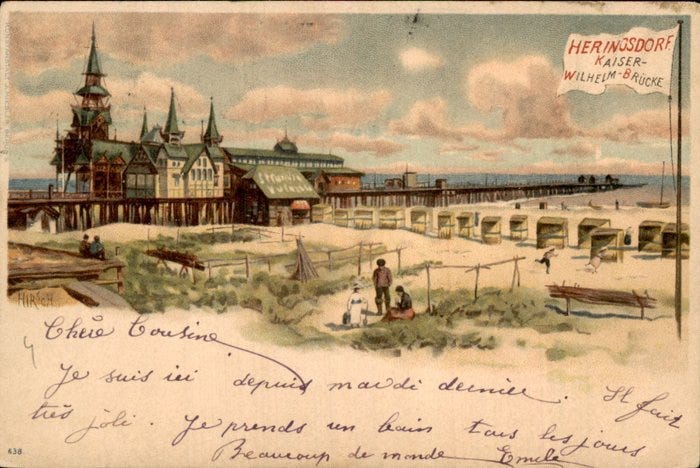 HERINGSDORF.
KAISER-
WILHELM-BRÜCKE
HIRSCH
Chère Cousine
Je suis ici depuis mardi dernier. Il fait
très joli. Je prends un bain tous les jours
Beaucoup de monde Emile
638